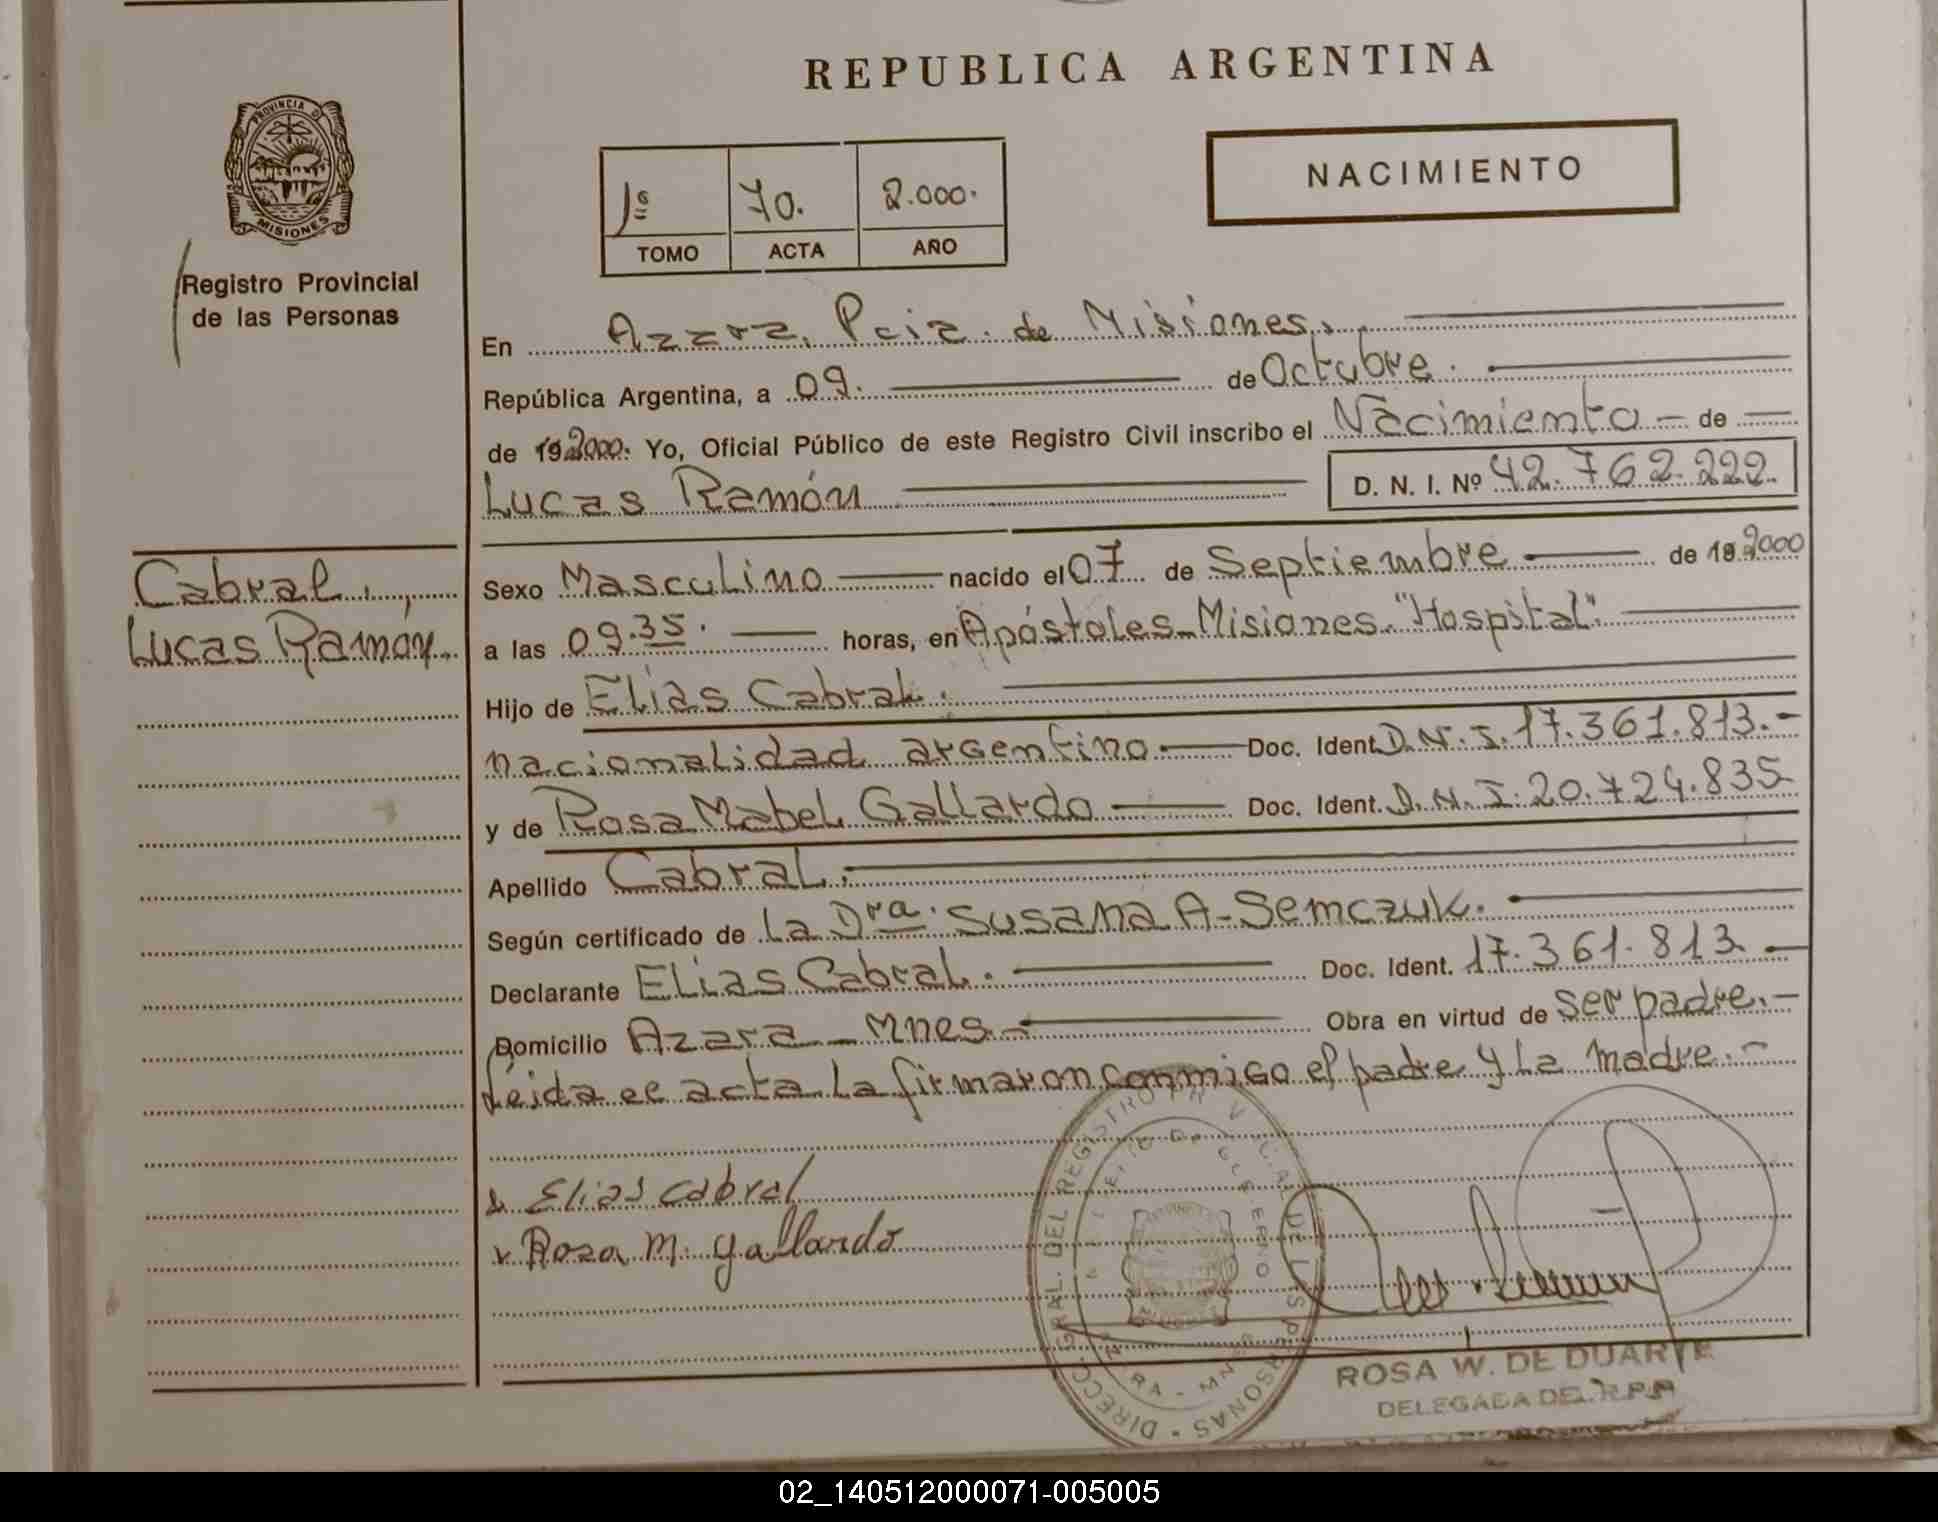 REPUBLICA ARGENTINA
PROVINCIA D
MISIONES
Registro Provincial
de las Personas
1º 70. 2.000.
TOMO ACTA AÑO
NACIMIENTO
En Azara, Pcia. de Misiones.
República Argentina, a 09. de Octubre.
de 19 2000. Yo, Oficial Público de este Registro Civil inscribo el Nacimiento de
Lucas Ramón D. N. I. Nº 42.762.222.
Cabral,
Lucas Ramón.
Sexo Masculino nacido el 07 de Septiembre de 19 2000
a las 09.35. horas, en Apóstoles Misiones "Hospital".
Hijo de Elias Cabral.
nacionalidad argentino Doc. Ident. D.N.I. 17.361.813.-
y de Rosa Mabel Gallardo Doc. Ident. D.N.I. 20.724.835
Apellido Cabral.
Según certificado de la Dra. Susana A. Semczuk.
Declarante Elias Cabral. Doc. Ident. 17.361.813
Domicilio Azara Mnes Obra en virtud de ser padre.-
Leida el acta la firmaron conmigo el padre y la madre.-
Elias Cabral
Rosa M. Gallardo
DIRECC. GRAL. DEL REGISTRO PROVINCIAL DE LAS PERSONAS
ROSA W. DE DUARTE
DELEGADA DEL R.P.P
02_140512000071-005005